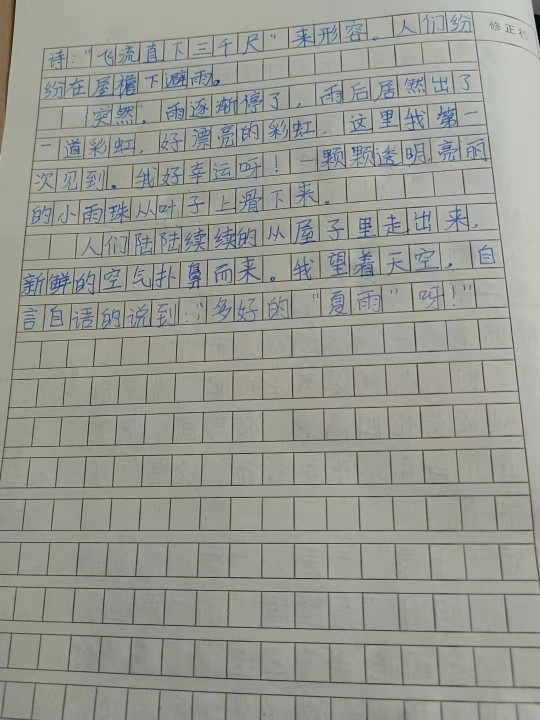 修正栏
诗:“飞流直下三千尺”来形容。人们纷
纷在屋檐下避雨。
突然,雨逐渐停了,雨后居然出了
一道彩虹,好漂亮的彩虹,这里我第一
次见到。我好幸运呀!一颗颗透明亮丽
的小雨珠从叶子上滑下来。
人们陆陆续续的从屋子里走出来,
新鲜的空气扑鼻而来。我望着天空,自
言自语的说到:“多好的“夏雨”呀!”